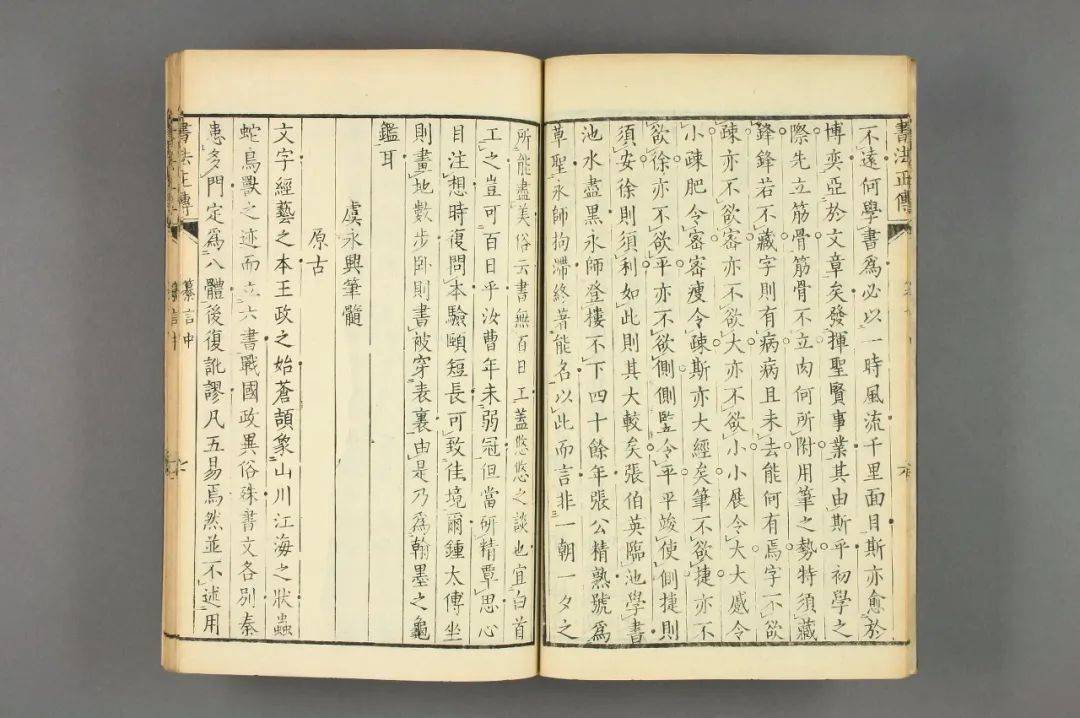 書法正傳
不遠何學書為必以一時風流千里面目斯亦愈於
博奕亞於文章矣發揮聖賢事業其由斯乎初學之
際先立筋骨筋骨不立肉何所附用筆之勢特須藏
鋒鋒若不藏字則有病病且未去能何有焉字不欲
疎亦不欲密亦不欲大亦不欲小小展令大大蹙令
小疎肥令密密瘦令疎斯亦大經矣筆不欲捷亦不
欲徐亦不欲平亦不欲側側豎令平平竣使側捷則
須安徐則須利如此則其大較矣張伯英臨池學書
池水盡黑永師登樓不下四十餘年張公精熟號為
草聖永師拘滯終著能名以此而言非一朝一夕之
所能盡美俗云書無百日工蓋悠悠之談也宜白首
工之豈可百日乎汝曹年未弱冠但當研精覃思心
目注想時復問本驗頤短長可致佳境爾鍾太傅坐
則畫地數步臥則書被穿表裏由是乃為翰墨之龜
鑑耳
虞永興筆髓
原古
文字經藝之本王政之始蒼頡象山川江海之狀蟲
蛇鳥獸之迹而立六書戰國政異俗殊書文各別秦
患多門定為八體後復訛謬凡五易焉然並不述用
書法正傳
纂言中